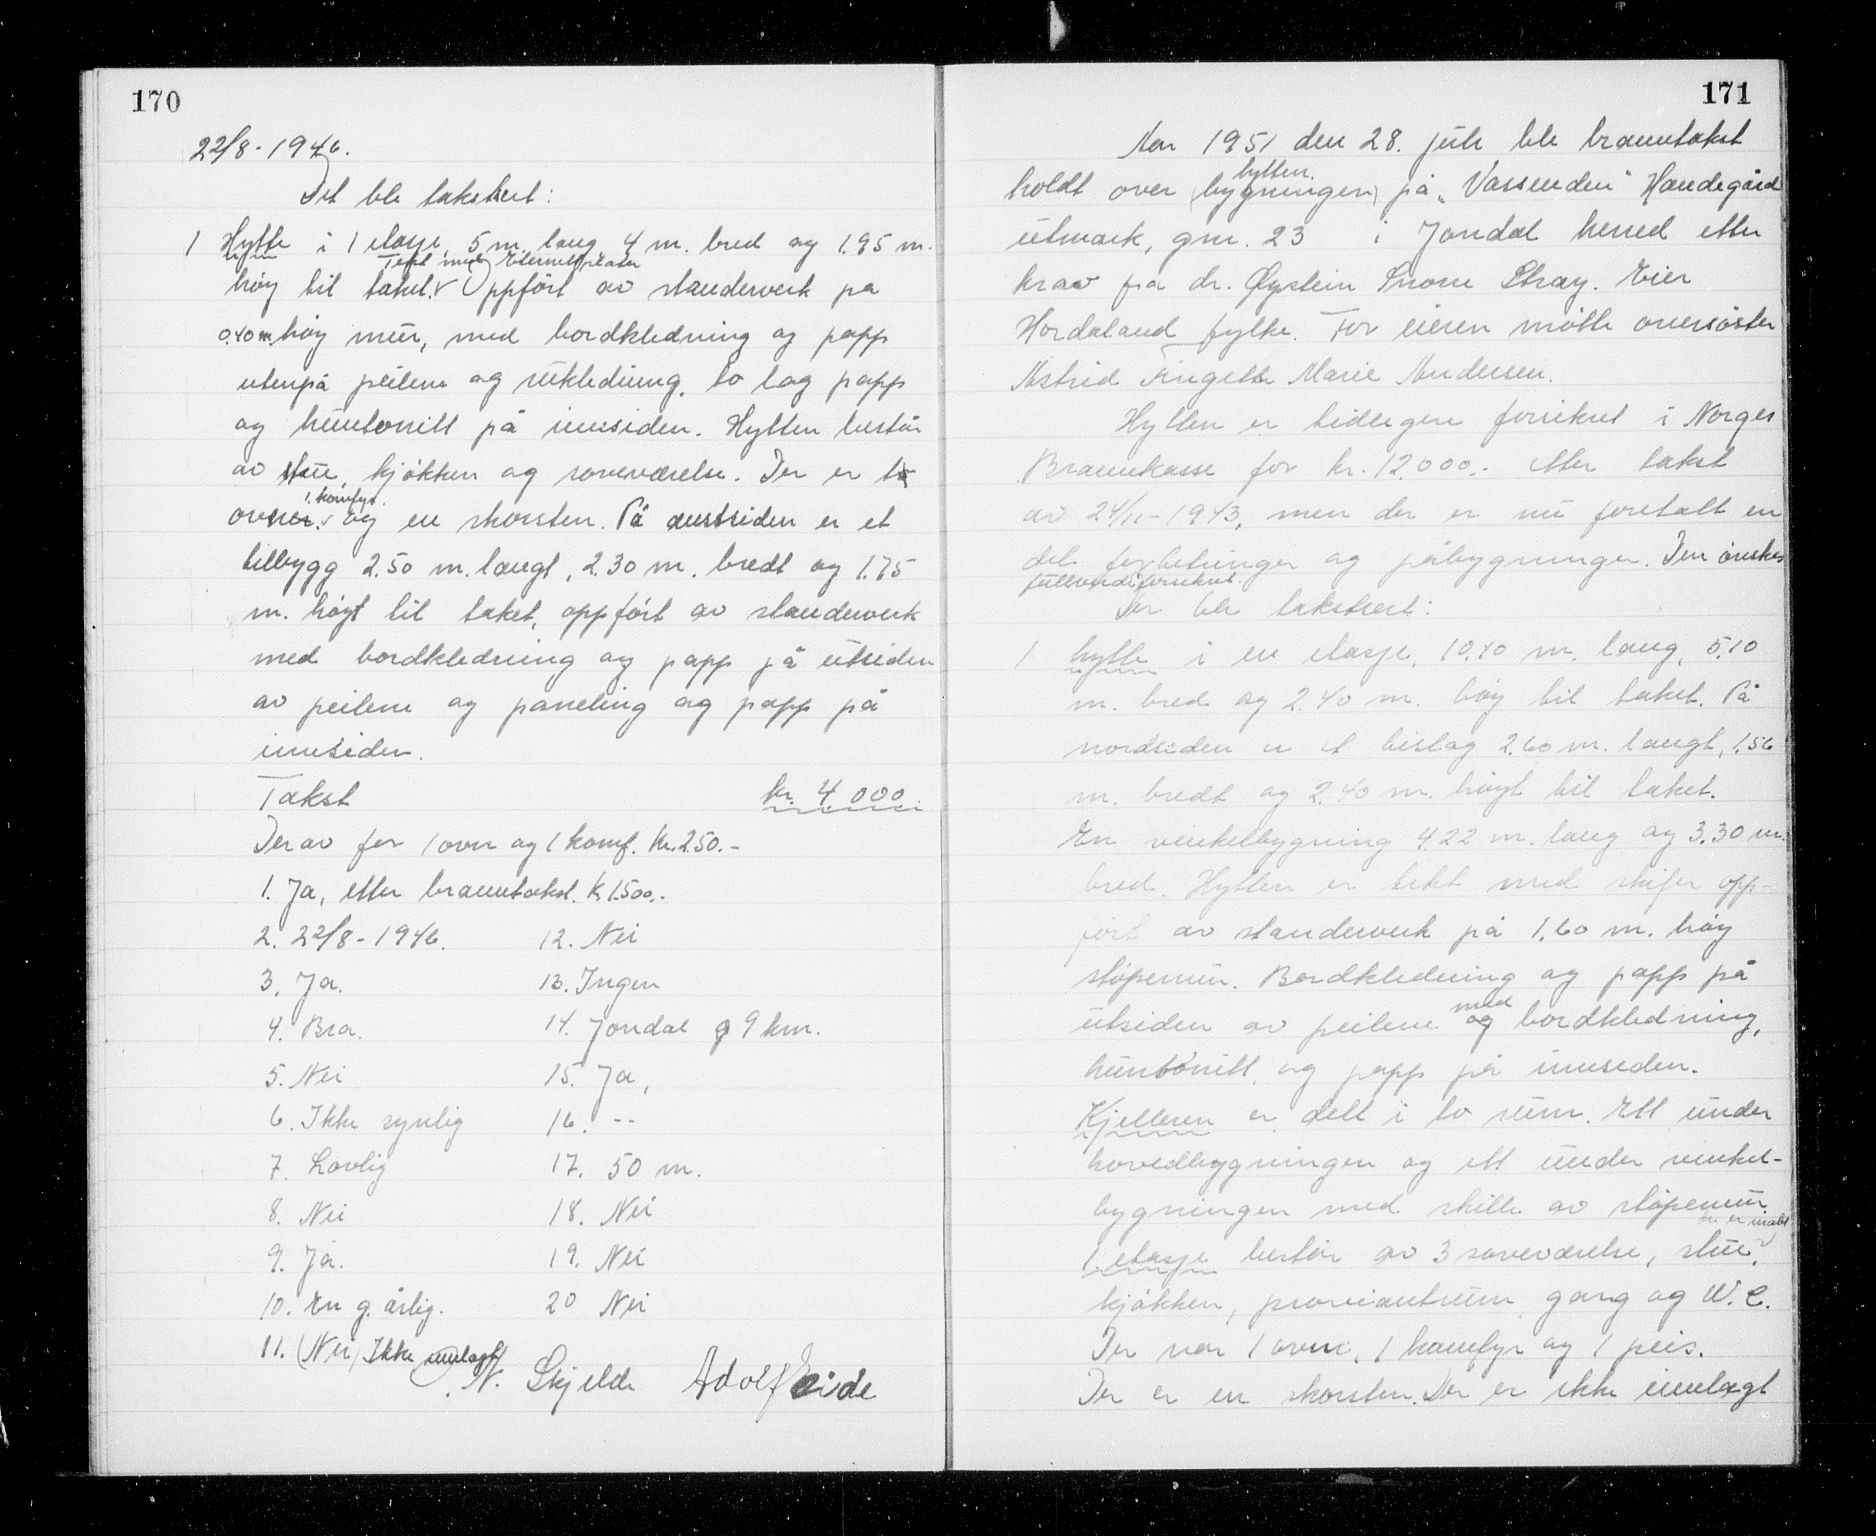 170
22/8-1946.
Det ble takstert:
1 Hytte i 1 etasje, 5 m. lang, 4 m. bred og 1.95 m.
Tekt med Eternitplater
høy til taket. Oppført av standerverk på
0.40 m. høy mur, med bordkledning og papp
utenpå peilene og to lag papp
og huntonitt på innsiden. Hytten består
av stue, kjøkken og soveværelse. Der er to
1. komfyr.
ovner og en skorsten. På austsiden er et
tilbygg 2.50 m. langt, 2.30 m. bredt og 1.75
m. høyt til taket, oppført av standerverk
med bordkledning og papp på utsiden
av peilene og paneling og papp på
innsiden.
Takst kr. 4 000.
Derav for 1 ovn og 1 komf. kr. 250.-
1. Ja, etter branntakst. kr 1500.-
2. 22/8-1946. 12. Nei
3. Ja. 13. Ingen
4. Bra. 14. Jondal 9 km.
5. Nei 15. Ja,
6. Ikke synlig 16. --
7. Lovlig 17. 50 m.
8. Nei 18. Nei
9. Ja. 19. Nei
10. En g. årlig. 20 Nei
11. (Nei) Ikke innlagt
N. Skjelde Adolf Eide
171
År 1951 den 28. juli ble branntakst
hytten.
holdt over (bygningen) på "Vassenden" Handegård
utmark, gnr. 23 i Jondal herred etter
krav fra dr. Øystein Snorre Stray. Eier
Hordaland fylke. For eieren møtte oversøster
Astrid Marie Andersen.
Hytten er tidligere forsikret i Norges
Brannkasse for kr. 12.000.- etter takst
av 24/11-1943, men der er nu foretatt en
del forbetringer og påbygninger. Den ønskes
fullverdiforsikret.
Der ble takstert:
1 hytte i en etasje, 10.40 m. lang, 5.10
m. bred og 2.40 m. høy til taket. På
nordsiden er et bislag 2.60 m. langt, 1.56
m. bredt og 2.40 m. høyt til taket.
En vinkelbygning 4.22 m. lang og 3.30 m.
bred. Hytten er tekt med skifer opp-
ført av standerverk på 1.60 m. høy
støpemur. Bordkledning og papp på
med
utsiden av peilene og bordkledning,
huntonitt, og papp på innsiden.
Kjelleren er delt i to rum. Ett under
hovedbygningen og ett under vinkel-
bygningen med skille av støpemur
1 etasje består av 3 soveværelse, stue,
kjøkken, proviantrum, gang og W.C.
Der var 1 ovn, 1 komfyr og 1 peis.
Der er en skorsten. Der er ikke innlagt